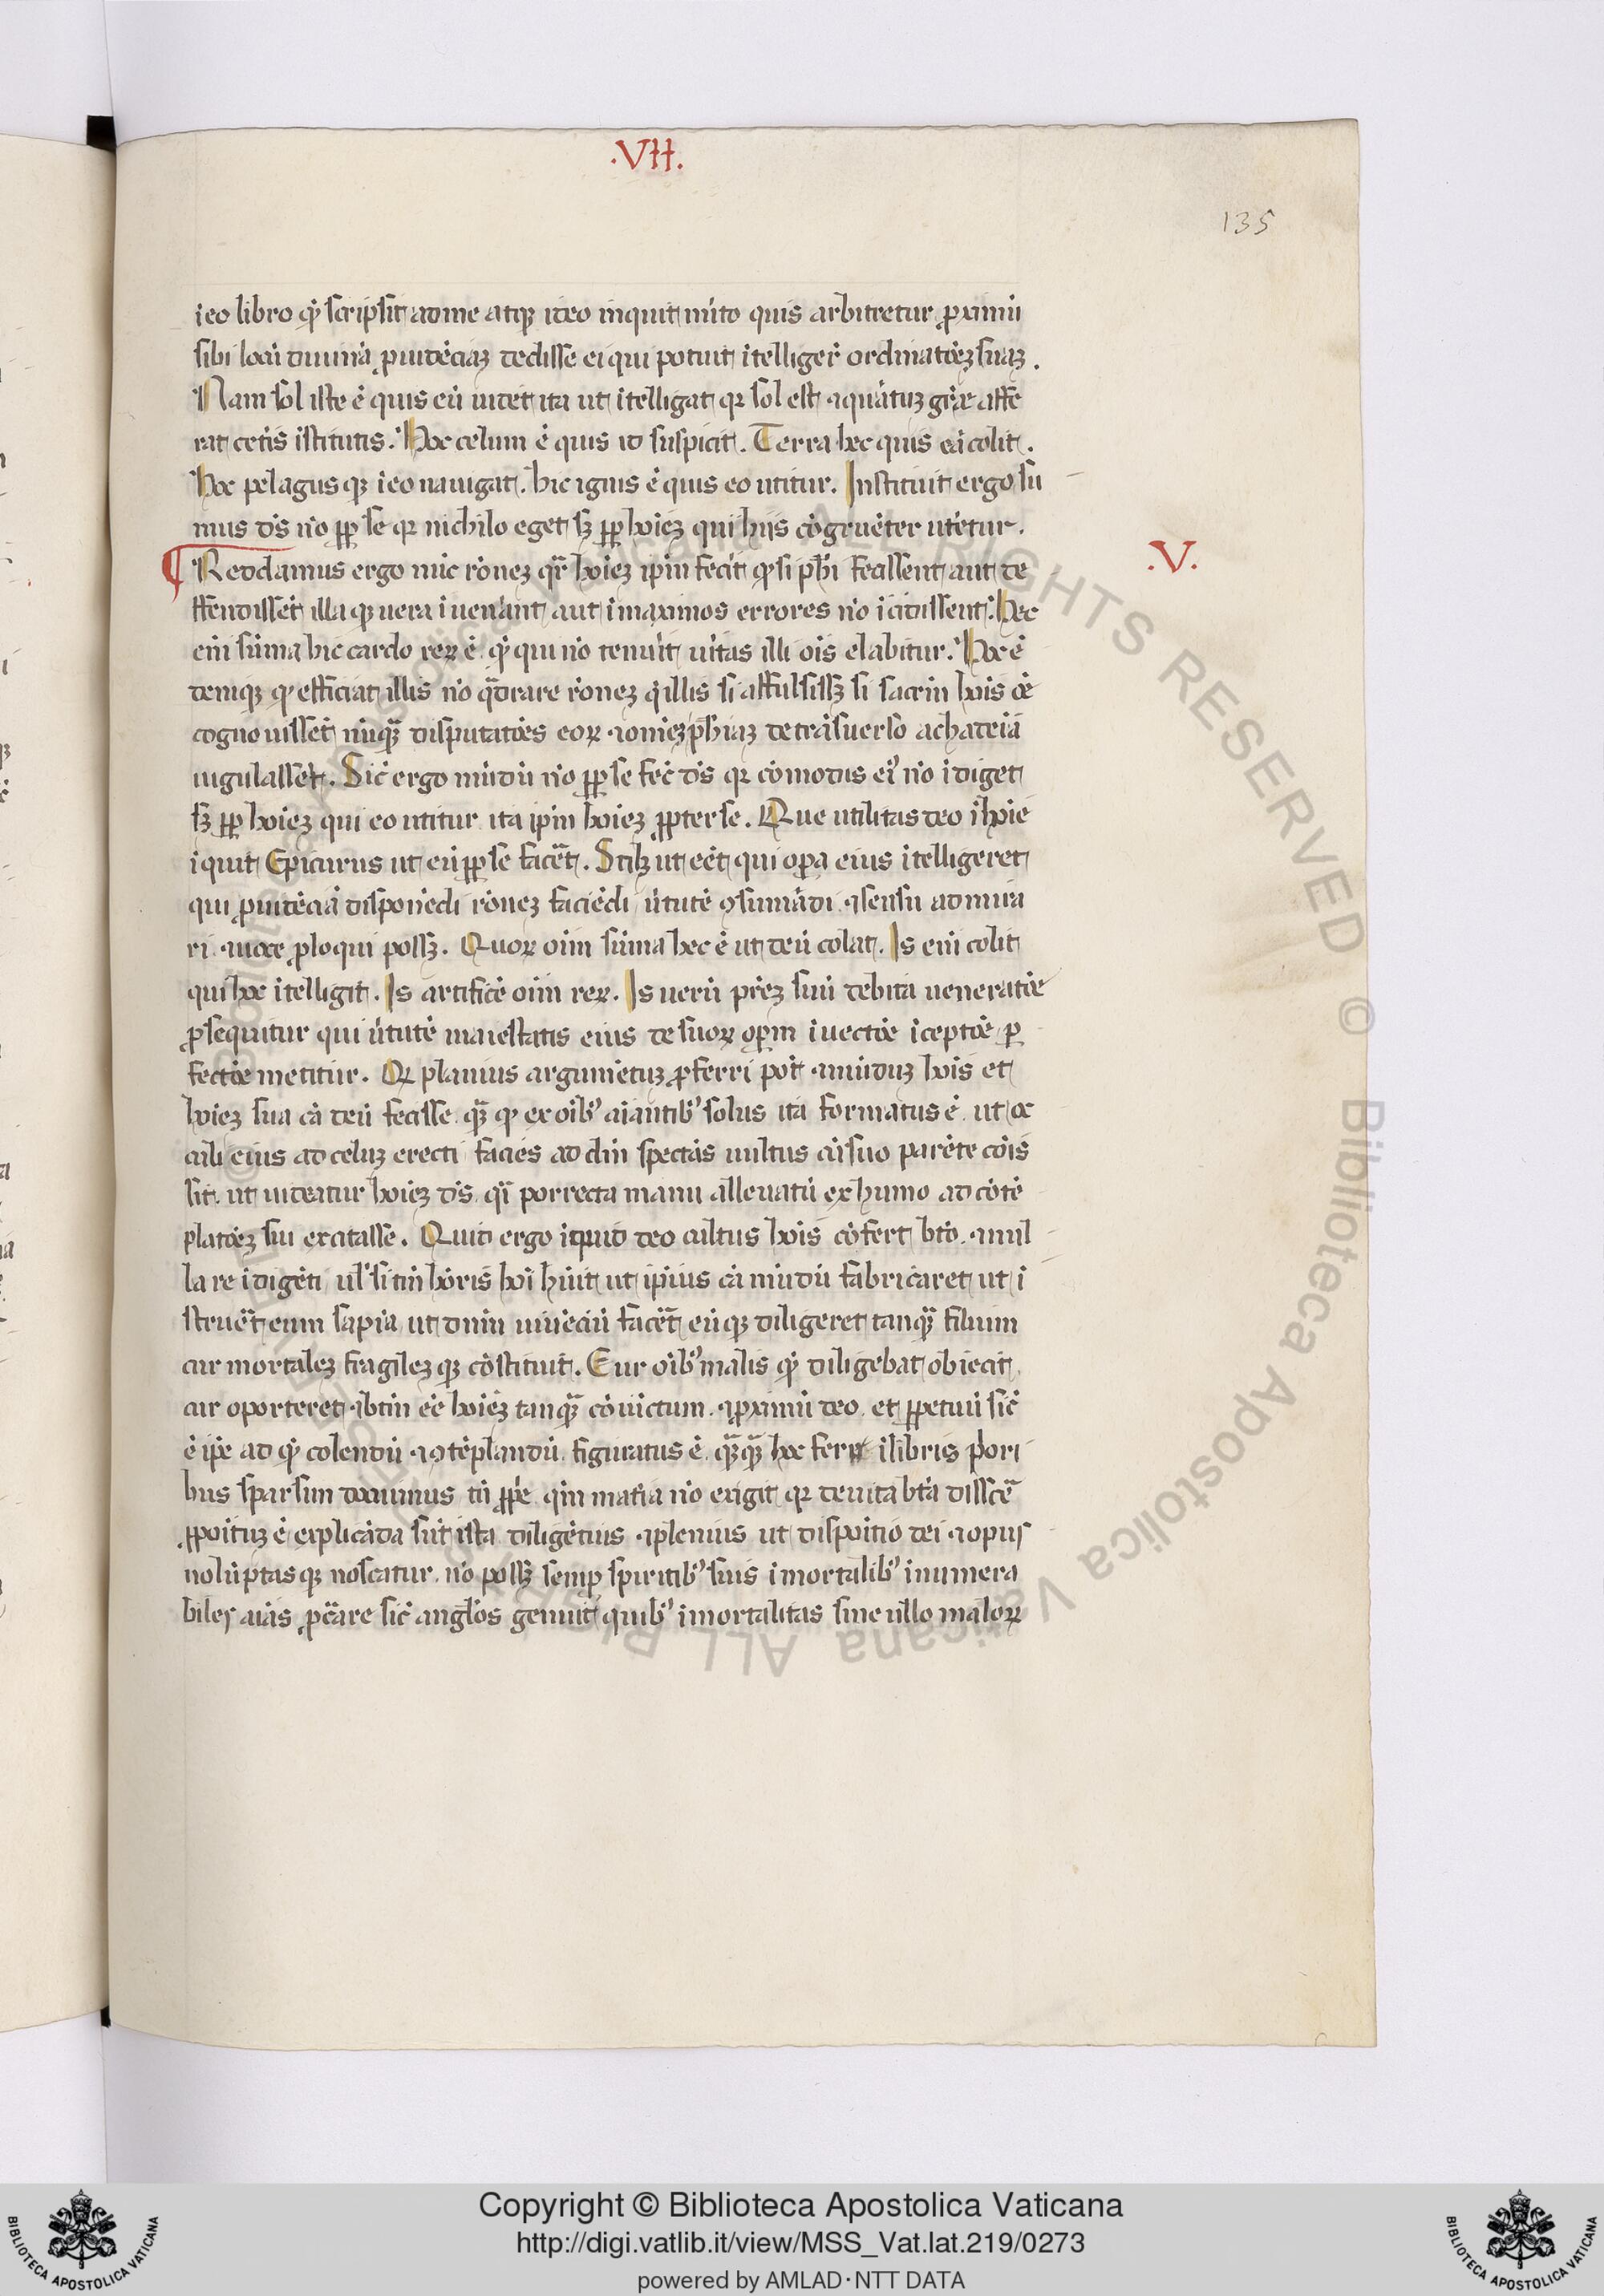 .VII.
135
i eo libro qđ scripsit ad me atqꝫ ideo inquit mūdo quis arbitretur ꝓximū
sibi locū diuinā ꝓuidēciaꝫ dedisse ei qui potuit ītelliger̄ ordinatōeꝫ suaꝫ .
Nam sol iste ē quis eū uidet ita ut ītelligat qꝛ sol est ⁊ quātuꝫ gr̄e affe
rat cet̄is īstitutis . Hoc celum ē quis id suspicit . Terra hec quis eā colit .
Hoc pelagus qꝫ ī eo nauigat . hic ignis ē quis eo utitur . Instituit ergo sū
mus ds̄ nō ꝓp̄ se qꝛ nichilo eget sꝫ ꝓp̄ hōieꝫ qui hijs cōgruēter utētur .
Reddamus ergo nūc rōneꝫ qr̄ hōieꝫ ip̄m fecīt qđ si ph̄i fecissent aut de
ffendissēt illa qꝫ uera īuenānt aut ī maximos errores nō īcidissent . Hec
eni sūma hic cardo reꝝ ē qđ qui nō tenuīt uītas illi ois̄ elabitur . Hoc ē
deniqꝫ qđ efficiat illis nō qͣdrare rōneꝫ q̄ illis si affulsissꝫ si sacrm̄ hōis oē
cognouissēt nūqͣꝫ disputatōes eoꝝ ⁊ om̄eꝫ ph̄iaꝫ de trāsuerso achademia
iugulasset . Sic̄ ergo mūdū nō ꝓp̄ se fec̄ ds̄ qꝛ cōmodis eiꝰ nō īdiget
sꝫ ꝓp̄ hōieꝫ qui eo utitur ita ip̄m hōieꝫ ꝓpter se . Que utilitas deo ī hoīe
īquit Epicurus ut eū ꝓp̄ se facet̄ . Scilꝫ ut eēt qui oꝑa eius ītelligeret
qui ꝓuidēciā disponēdi rōneꝫ faciēdi ūtutē ꝯsumādi ⁊ sensu admira
ri ⁊ uoce ꝓloqui possꝫ . Quoꝝ oīm sūma hec ē ut deū colat . Is eni colit
qui hoc ītelligit . Is artificē oīm reꝝ . Is uerū pr̄eꝫ suū debita ueneratōe
ꝓsequitur qui ūtutē maiestatis eius de suoꝝ oꝑm īuectōe īceptōe ꝑ
fectōe metitur . Qꝛ planius argumētuꝫ ꝓferri pōt ⁊ mūduꝫ hōis et
hōieꝫ sua cā deū fecisse qͣꝫ qđ ex oibꝰ aiantibꝰ solus ita formatus ē ut oc
culi eius ad celuꝫ erecti facies ad dm̄ spectās uultus cū suo parēte cōis
sit ut uideatur hōieꝫ ds̄ qͣi porrecta manu alleuatū ex humo ad cōtē
platōeꝫ sui excitasse . Quid ergo īquid deo cultus hōis cōfert bt̄o ⁊ nul
la re īdigēti ul̄ si tm̄ hōris hōi hūit ut ip̄ius cā mūdū fabricaret ut ī
struēt eum sapīa ut dnm̄ uiuēciū facēt eūqꝫ diligeret tanqͣꝫ filium
cur mortaleꝫ fragileꝫ qꝫ cōstituit . Cur oībꝰ malis qđ diligebat obiecit
cur oporteret ⁊ btm̄ eē hōieꝫ tanqͣꝫ cōuictum ⁊ ꝓximū deo et ꝑpetuū sic̄
ē ip̄e ad qđ colendū ⁊ ꝯtēplandū figuratus ē qͣꝫqͣꝫ hoc fere ī libris pōri
bus sparsim docuimus tn̄ ꝓp̄e qm̄ mat̄ia nō exigit qꝛ de uita bt̄a dissce᷑
ꝓpoituꝫ ē explicāda sūt ista diligētius ⁊ plenius ut dispōitio dei ⁊ opus
uolūptas qꝫ noscatur nō possꝫ semꝑ spiritibꝰ suis imortalibꝰ inumera
biles aiās ꝓc̄are sic̄ angl̄os genuit quibꝰ imortalitas sine ullo maloꝝ
.V.
© Biblioteca Apostolica Vaticana ALL RIGHTS RESERVED
Copyright © Biblioteca Apostolica Vaticana
http://digi.vatlib.it/view/MSS_Vat.lat.219/0273
powered by AMLAD·NTT DATA
BIBLIOTECA APOSTOLICA VATICANA
BIBLIOTECA APOSTOLICA VATICANA